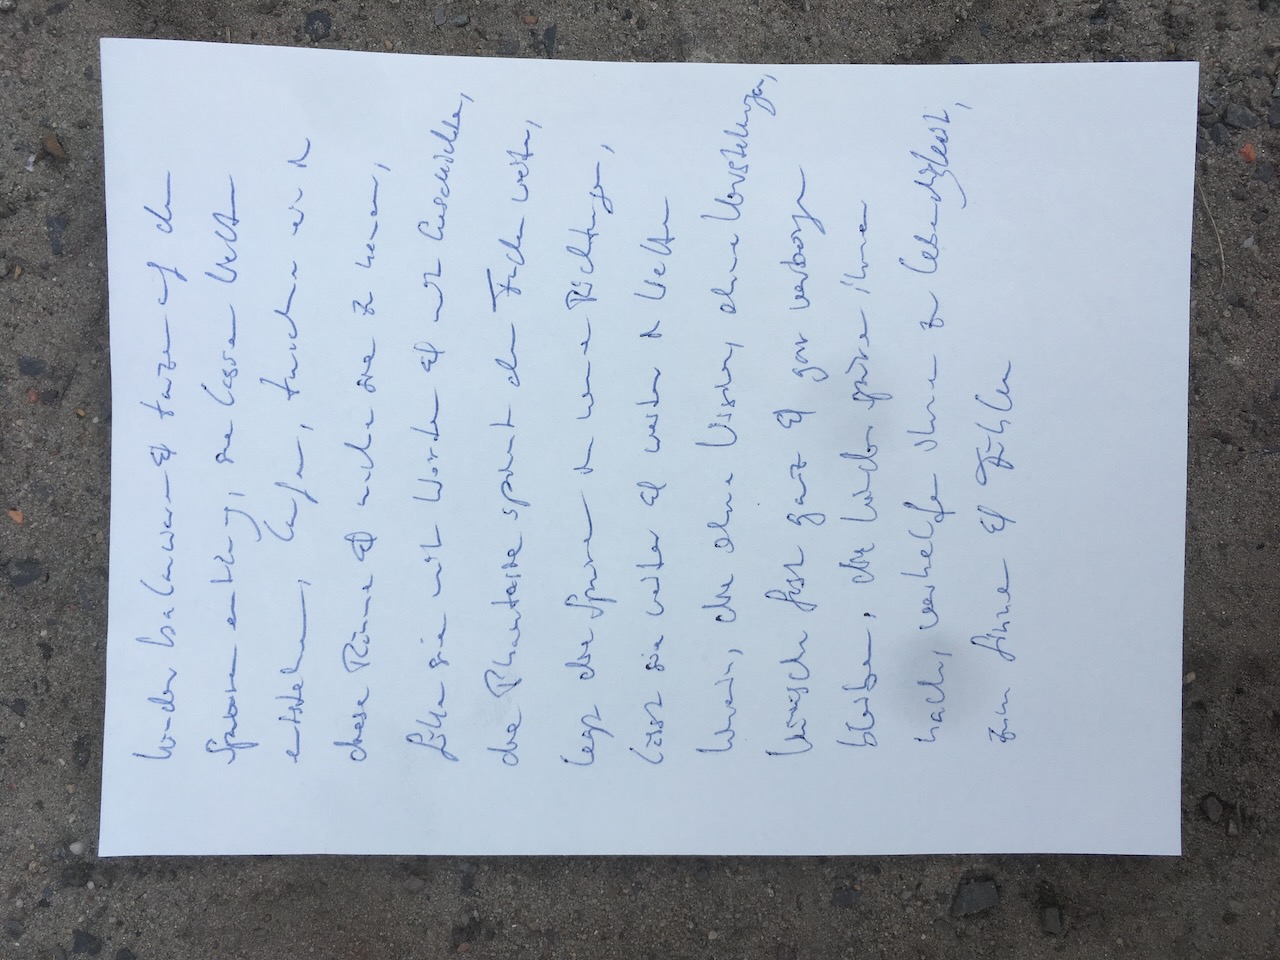 Kinder balancieren & tanzen auf den
Spuren entlang, sie lassen Welten
entstehen, laufen, tauchen ein in
diese Räume & suche sie zu
fülle sie mit Worten & mit Geschichten,
die Phantasie spinnt den Faden weiter,
legt die Spuren in neue Richtungen,
lässt sie weiter & weiter in Welten
hinein, die ohne Vision, ohne Vorstellungen,
Wünsche fast ganz & gar verborgen
bleiben, die Kinder spüre ihnen
nach, verhelfen ihnen zu Lebendigkeit,
zum Sinnen & Fühlen